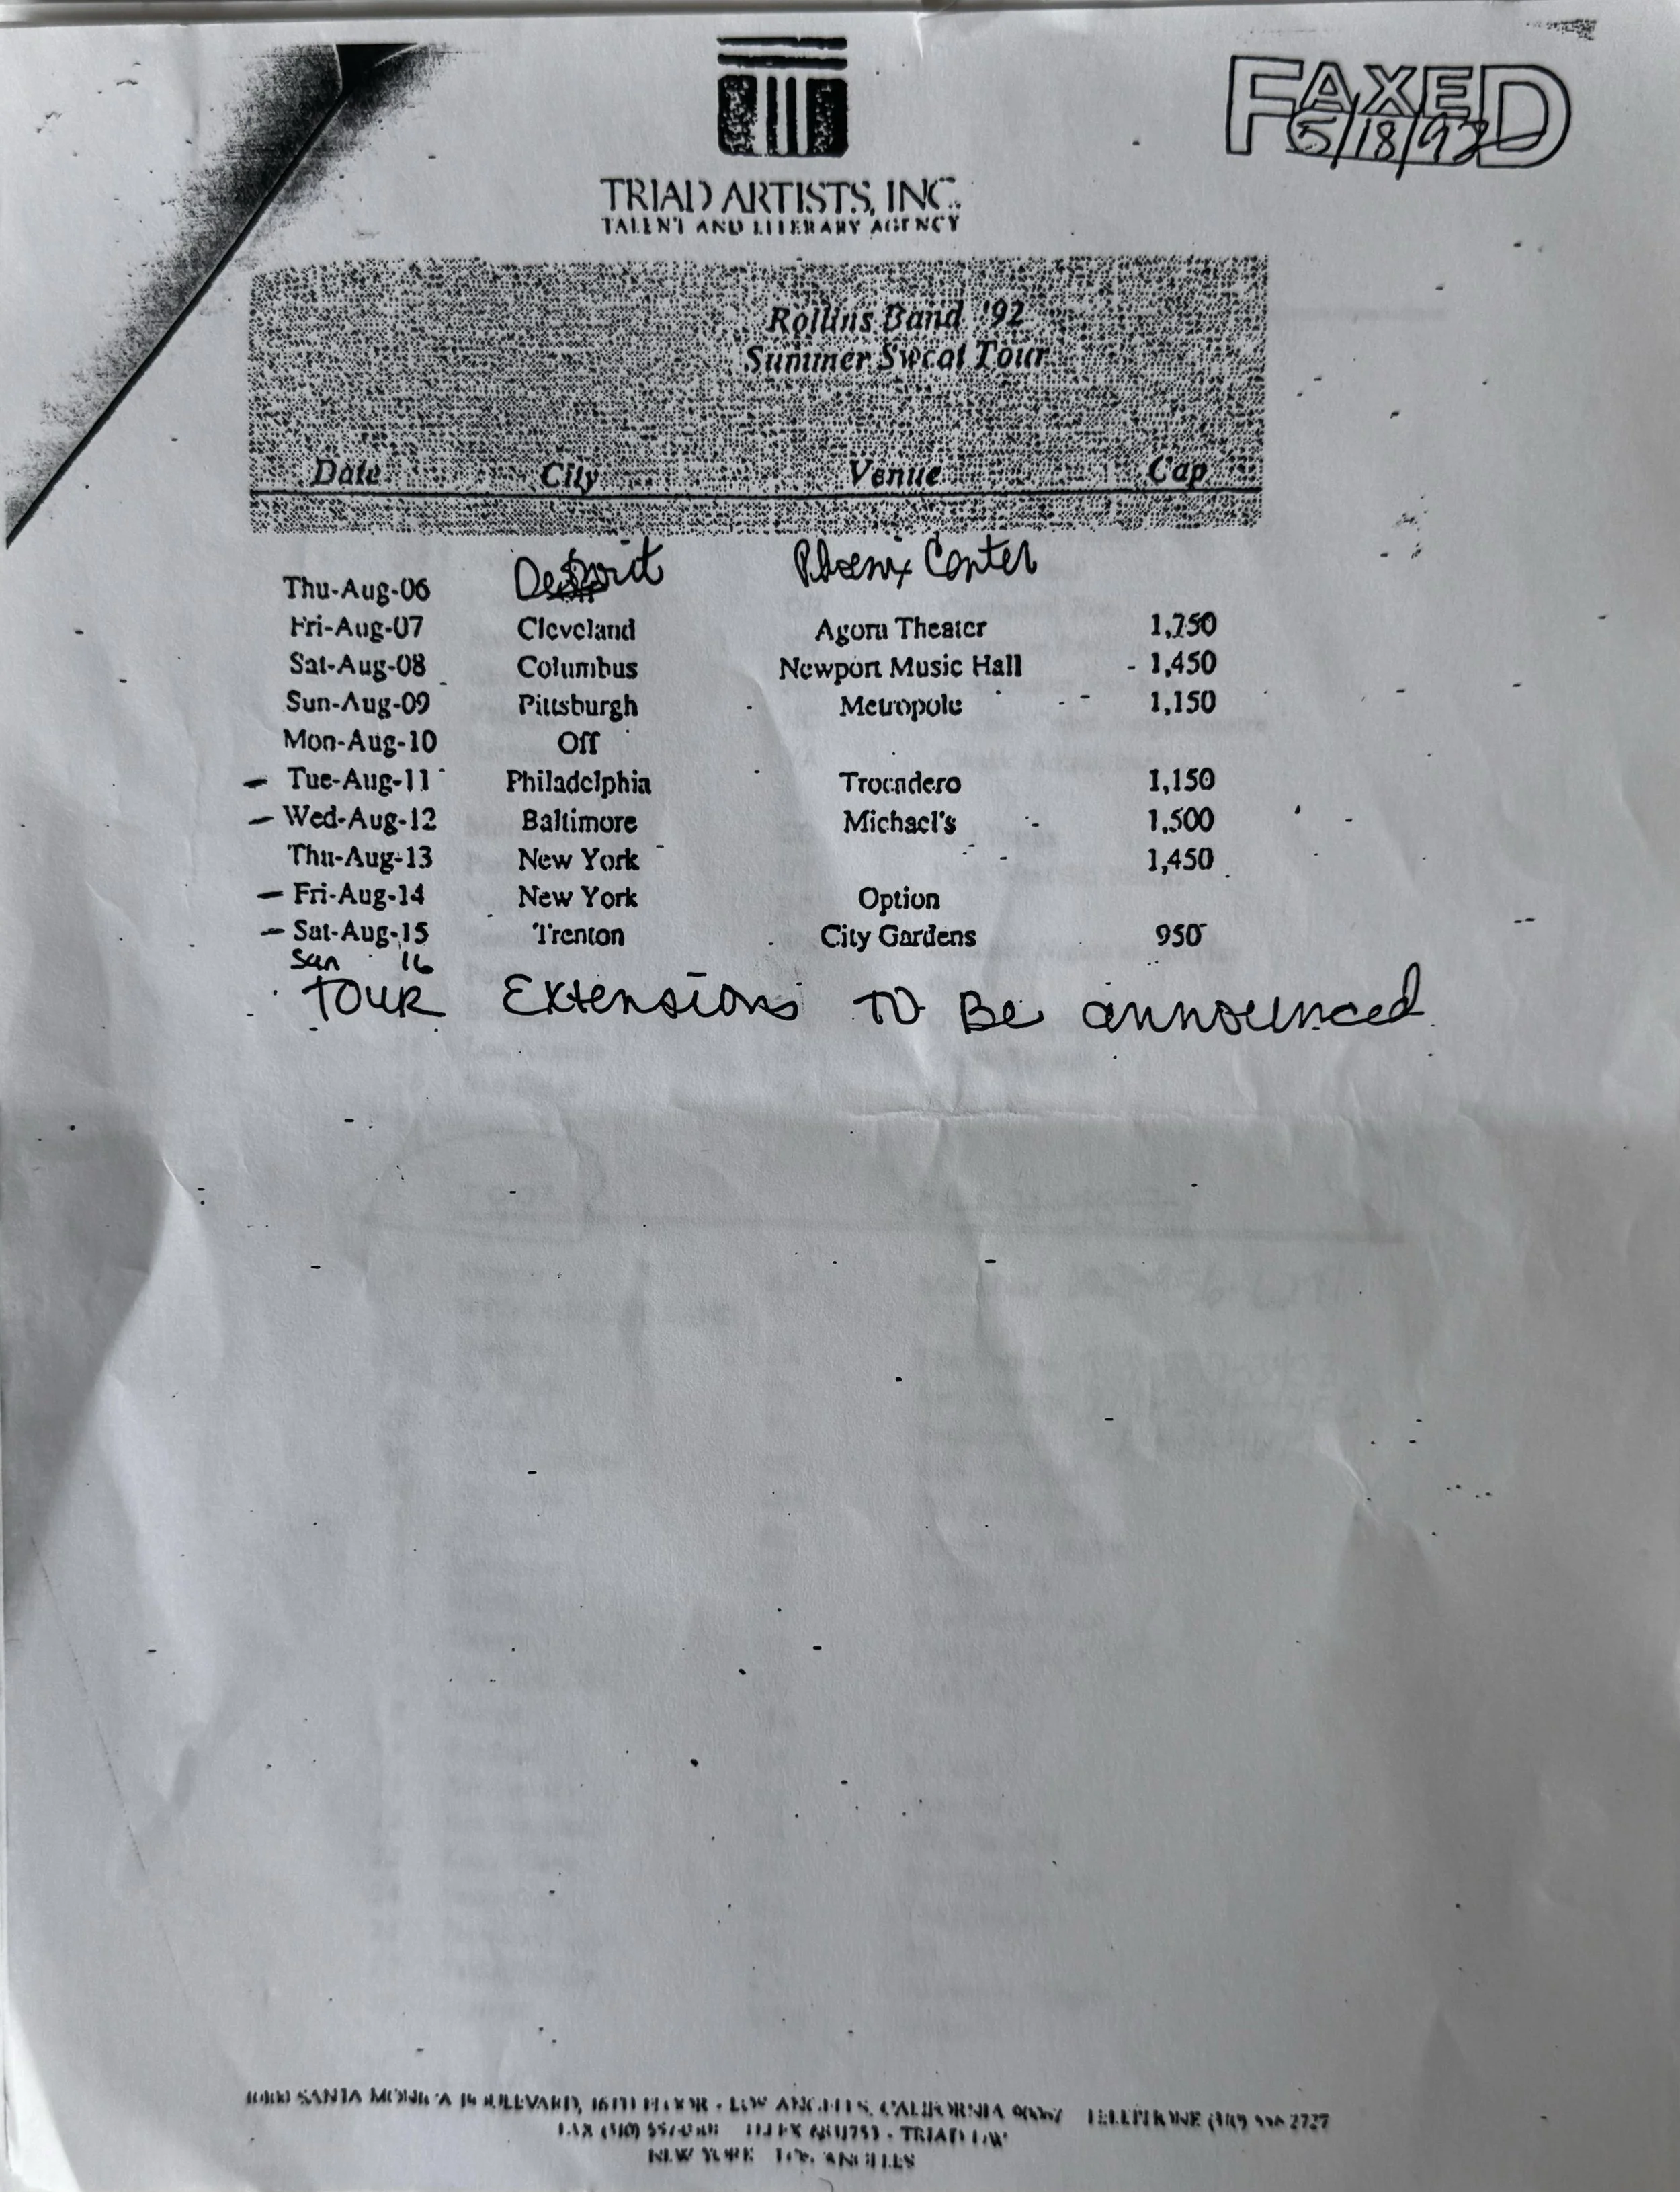 FAXED
5/18/92
TRIAD ARTISTS, INC.
TALENT AND LITERARY AGENCY
Rollins Band '92
Summer Sweat Tour
Date City Venue Cap
Thu-Aug-06 Detroit Phoenix Center
Fri-Aug-07 Cleveland Agora Theater 1,750
Sat-Aug-08 Columbus Newport Music Hall 1,450
Sun-Aug-09 Pittsburgh Metropole 1,150
Mon-Aug-10 Off
- Tue-Aug-11 Philadelphia Trocadero 1,150
- Wed-Aug-12 Baltimore Michael's 1,500
Thu-Aug-13 New York 1,450
- Fri-Aug-14 New York Option
- Sat-Aug-15 Trenton City Gardens 950
Sun 16
TOUR Extensions TO Be announced
SANTA MONICA BOULEVARD, 16TH FLOOR - LOS ANGELES, CALIFORNIA 90067 TELEPHONE 2727
FAX (310) TELEX - TRIAD LA
NEW YORK LOS ANGELES